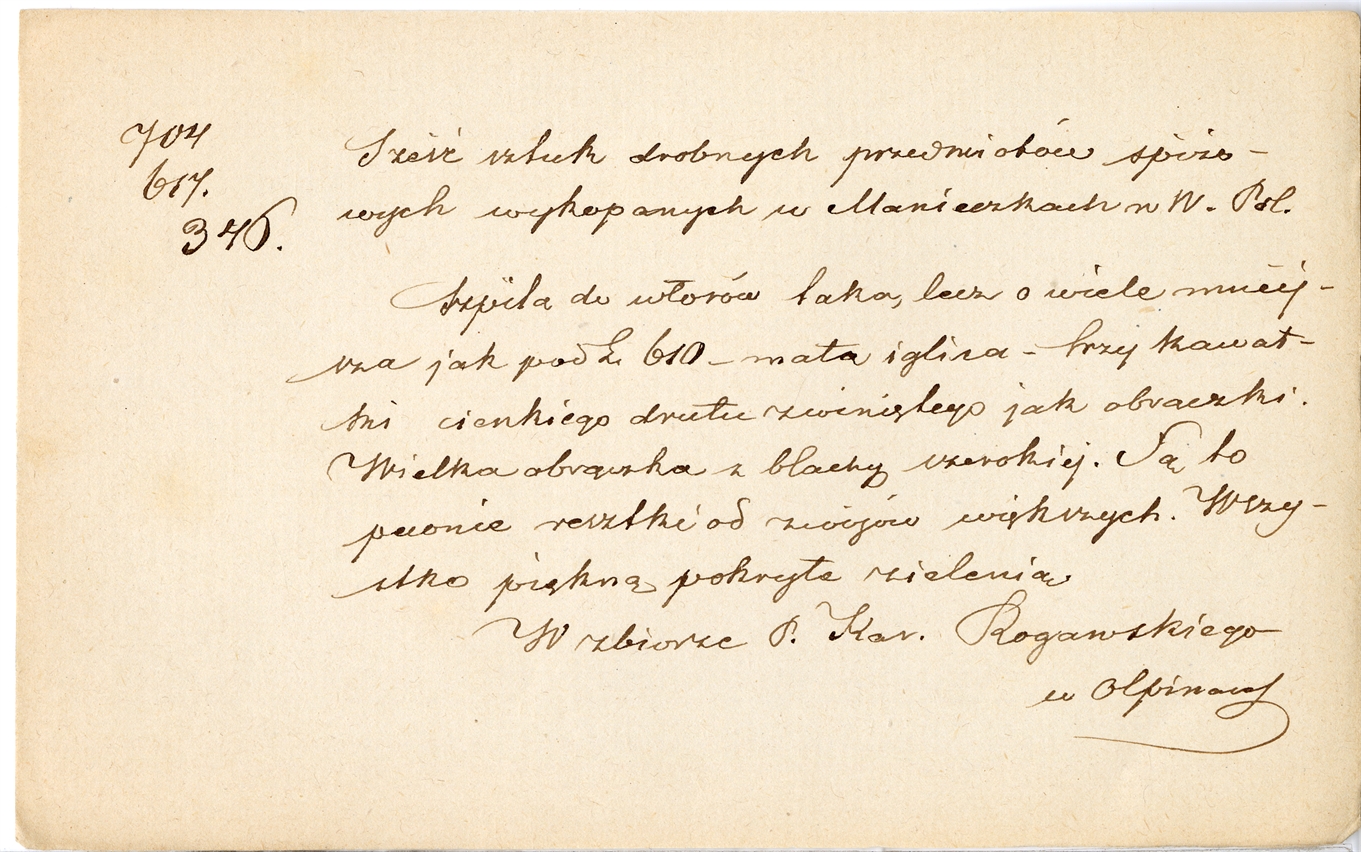 704
617.
346.
Sześć sztuk drobnych przedmiotów spiżo-
wych wykopanych w Manieczkach w W. Pol.
Szpila do włosów taka, lecz o wiele mniej-
sza jak pod L. 610 – mała iglica – trzy kawał-
ki cienkiego drutu zwiniętego jak obrączki.
Wielka obrączka z blachy szerokiej. Są to
pewnie resztki od zwojów większych. Wszy-
stko piękną pokryte zielenią
W zbiorze P. Kar. Rogawskiego
w Ołpinach